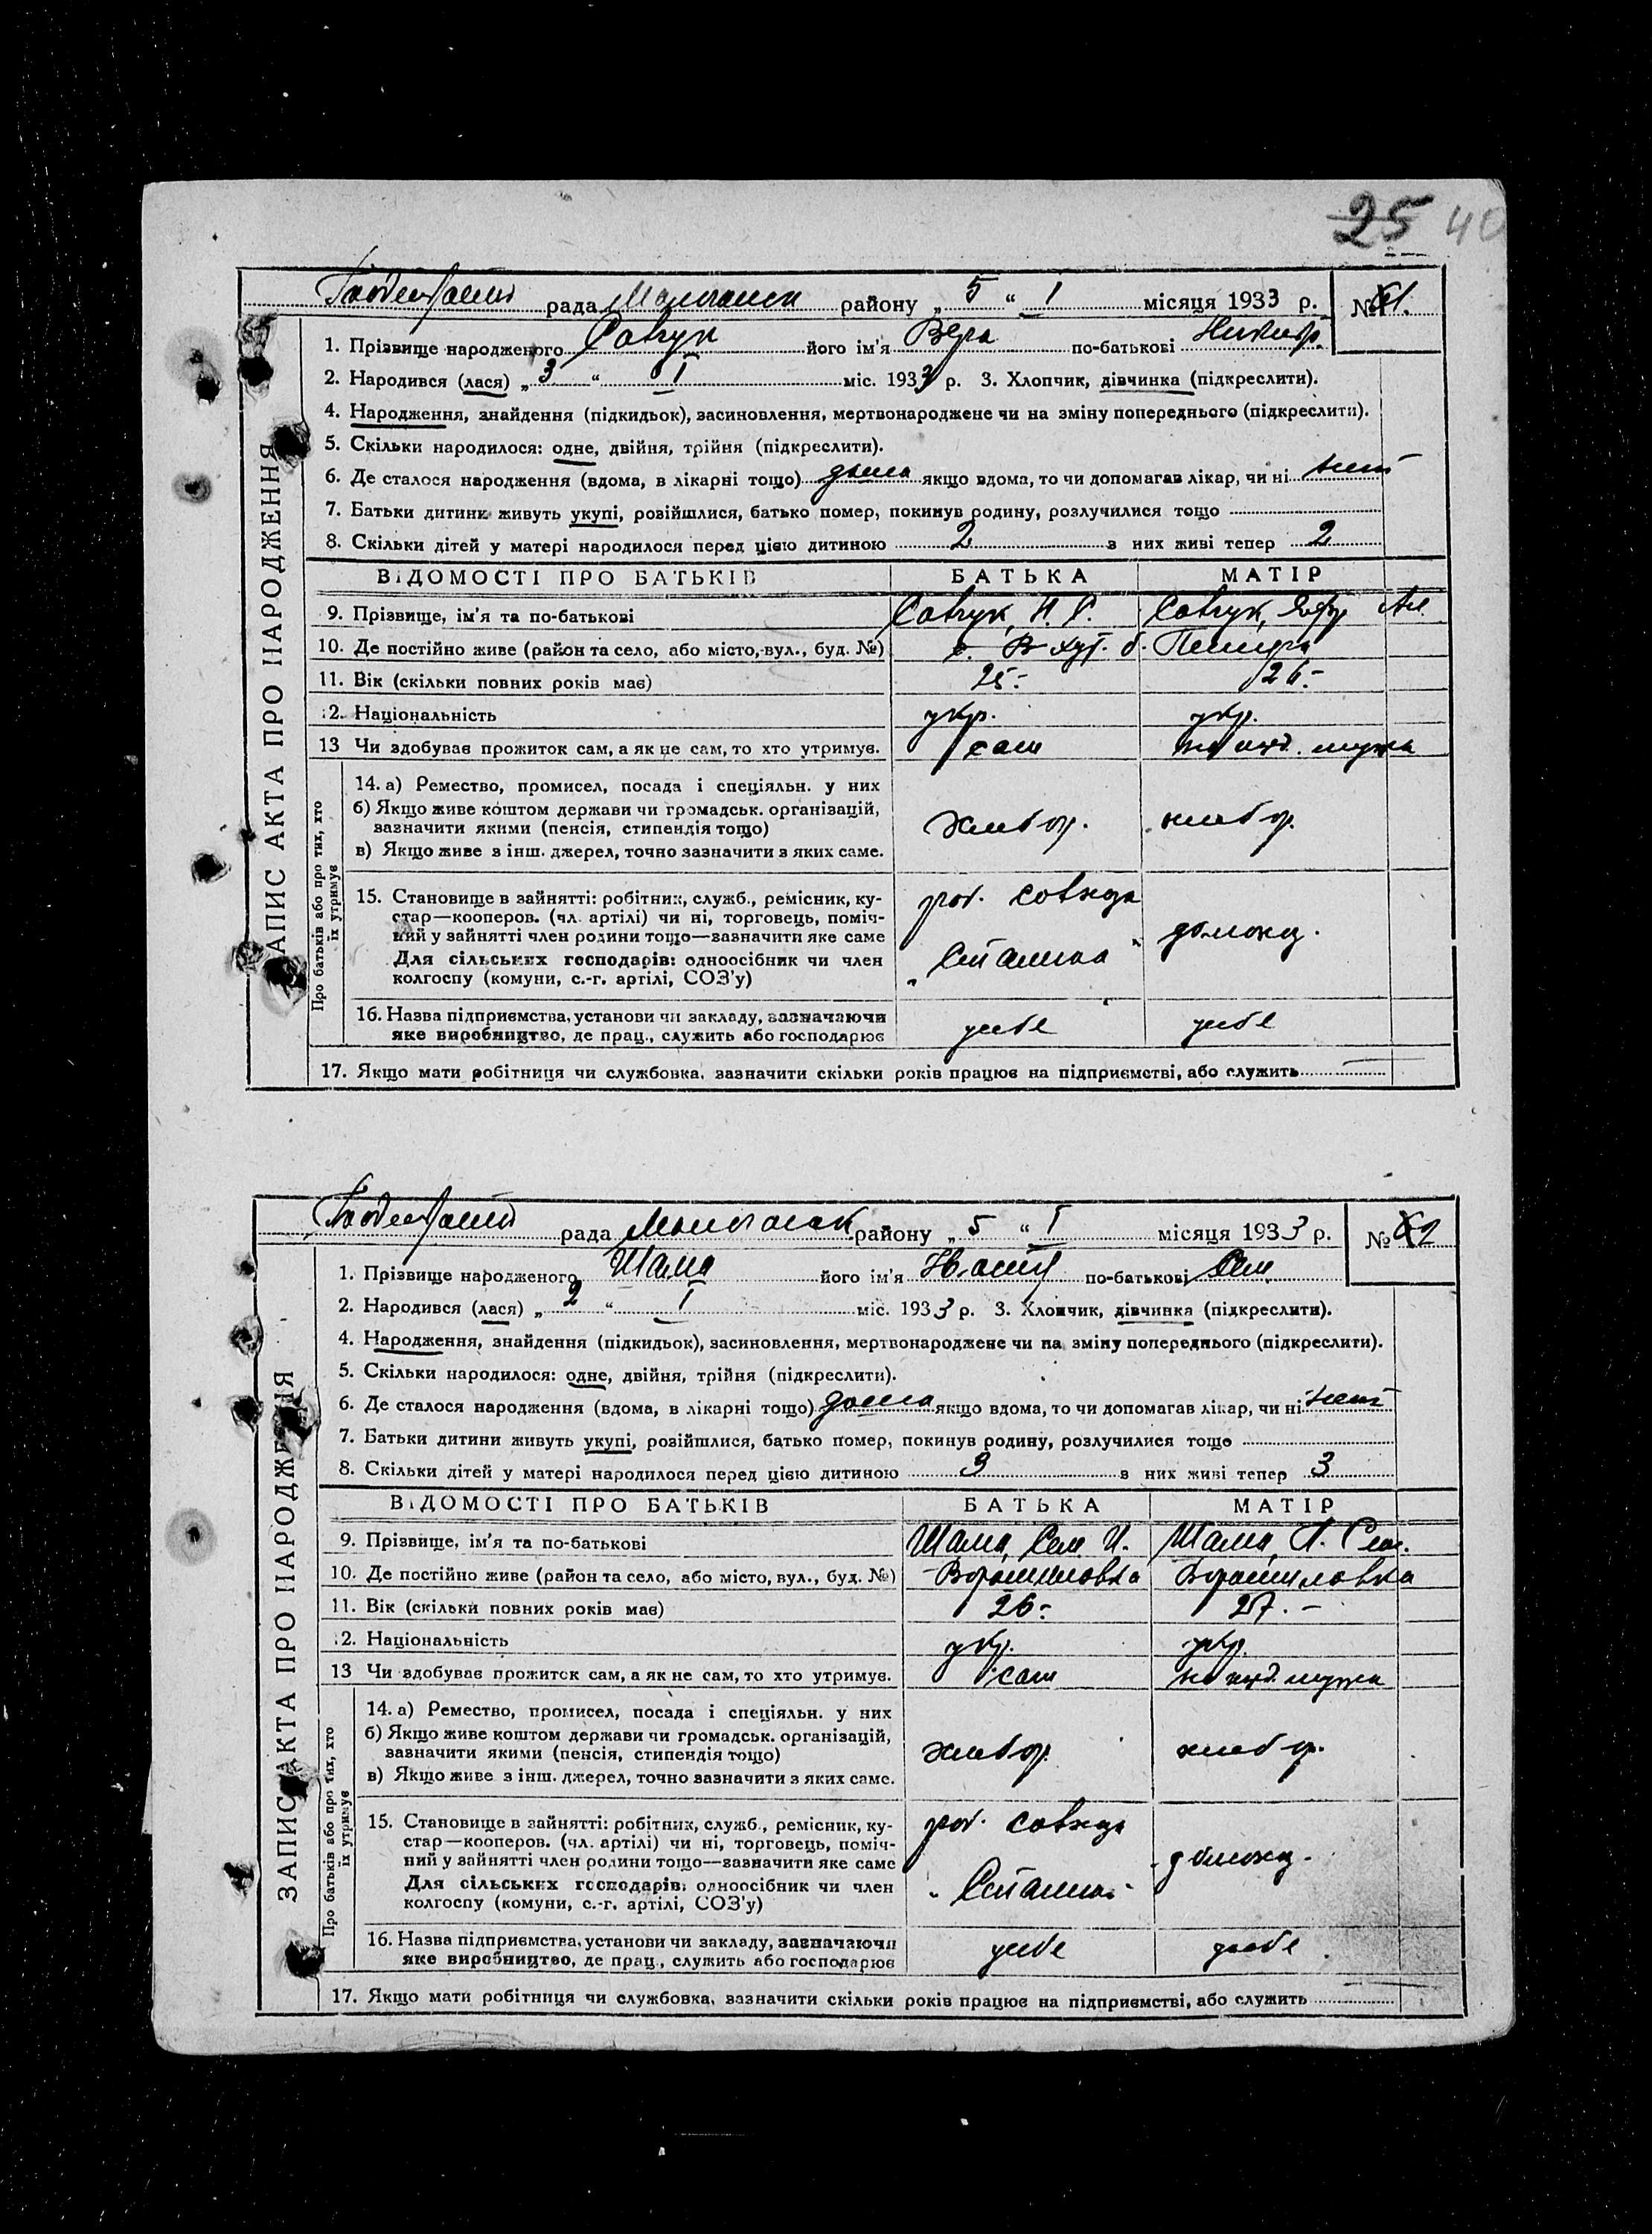 25 40
рада район „5“ I місяця 1933 р. №
ЗАПИС АКТА ПРО НАРОДЖЕННЯ
1. Прізвище народженого Савчук його ім'я Вера по-батькові Никиф.
2. Народився (лася) „3“ I міс. 1933 р. 3. Хлопчик, дівчинка (підкреслити).
4. Народження, знайдення (підкидьок), засиновлення, мертвонароджене чи на зміну попереднього (підкреслити).
5. Скільки народилося: одне, двійня, трійня (підкреслити).
6. Де сталося народження (вдома, в лікарні тощо) дома якщо вдома, то чи допомагав лікар, чи ні нет
7. Батьки дитини живуть укупі, розійшлися, батько помер, покинув родину, розлучилися тощо
8. Скільки дітей у матері народилося перед цією дитиною 2 з них живі тепер 2
ВІДОМОСТІ ПРО БАТЬКІВ БАТЬКА МАТІР
9. Прізвище, ім'я та по-батькові Савчук, Н. С. Савчук,
10. Де постійно живе (район та село, або місто, вул., буд. №) хут. б.
11. Вік (скільки повних років має) 25- 26-
12. Національність укр. укр.
13 Чи здобував прожиток сам, а як не сам, то хто утримує. сам на ижд. мужа
Про батьків або про тих, хто їх утримує
14. а) Ремество, промисел, посада і спеціяльн. у них
б) Якщо живе коштом держави чи громадськ. організацій,
зазначити якими (пенсія, стипендія тощо) хлебор. хлебор.
в) Якщо живе з інш. джерел, точно зазначити з яких саме.
15. Становище в зайнятті: робітник, служб., ремісник, ку- раб. совхоза
стар—кооперов. (чл. артілі) чи ні, торговець, поміч-
ний у зайнятті член родини тощо—зазначити яке саме домохоз.
Для сільських господарів: одноосібник чи член „Сталина“
колгоспу (комуни, с.-г. артілі, СОЗ'у)
16. Назва підприємства, установи чи закладу, зазначаючи
яке виробництво, де прац., служить або господарює
17. Якщо мати робітниця чи службовка, зазначити скільки років працює на підприємстві, або служить
рада району „5“ I місяця 1933 р. №
ЗАПИС АКТА ПРО НАРОДЖЕННЯ
1. Прізвище народженого Шама його ім'я по-батькові Сем.
2. Народився (лася) „2“ I міс. 1933 р. 3. Хлопчик, дівчинка (підкреслити).
4. Народження, знайдення (підкидьок), засиновлення, мертвонароджене чи на зміну попереднього (підкреслити).
5. Скільки народилося: одне, двійня, трійня (підкреслити).
6. Де сталося народження (вдома, в лікарні тощо) дома якщо вдома, то чи допомагав лікар, чи ні нет
7. Батьки дитини живуть укупі, розійшлися, батько помер, покинув родину, розлучилися тощо
8. Скільки дітей у матері народилося перед цією дитиною 3 з них живі тепер 3
ВІДОМОСТІ ПРО БАТЬКІВ БАТЬКА МАТІР
9. Прізвище, ім'я та по-батькові Шама, Сем. И. Шама,
10. Де постійно живе (район та село, або місто, вул., буд. №) Ворошиловка Ворошиловка
11. Вік (скільки повних років має) 26- 27.-
12. Національність укр. укр.
13 Чи здобував прожиток сам, а як не сам, то хто утримує. сам на ижд. мужа
Про батьків або про тих, хто їх утримує
14. а) Ремество, промисел, посада і спеціяльн. у них
б) Якщо живе коштом держави чи громадськ. організацій,
зазначити якими (пенсія, стипендія тощо) хлебор. хлебор.
в) Якщо живе з інш. джерел, точно зазначити з яких саме.
15. Становище в зайнятті: робітник, служб., ремісник, ку- раб. совхоза
стар—кооперов. (чл. артілі) чи ні, торговець, поміч-
ний у зайнятті член родини тощо—зазначити яке саме домохоз.
Для сільських господарів: одноосібник чи член „Сталина“
колгоспу (комуни, с.-г. артілі, СОЗ'у)
16. Назва підприємства, установи чи закладу, зазначаючи
яке виробництво, де прац., служить або господарює
17. Якщо мати робітниця чи службовка, зазначити скільки років працює на підприємстві, або служить